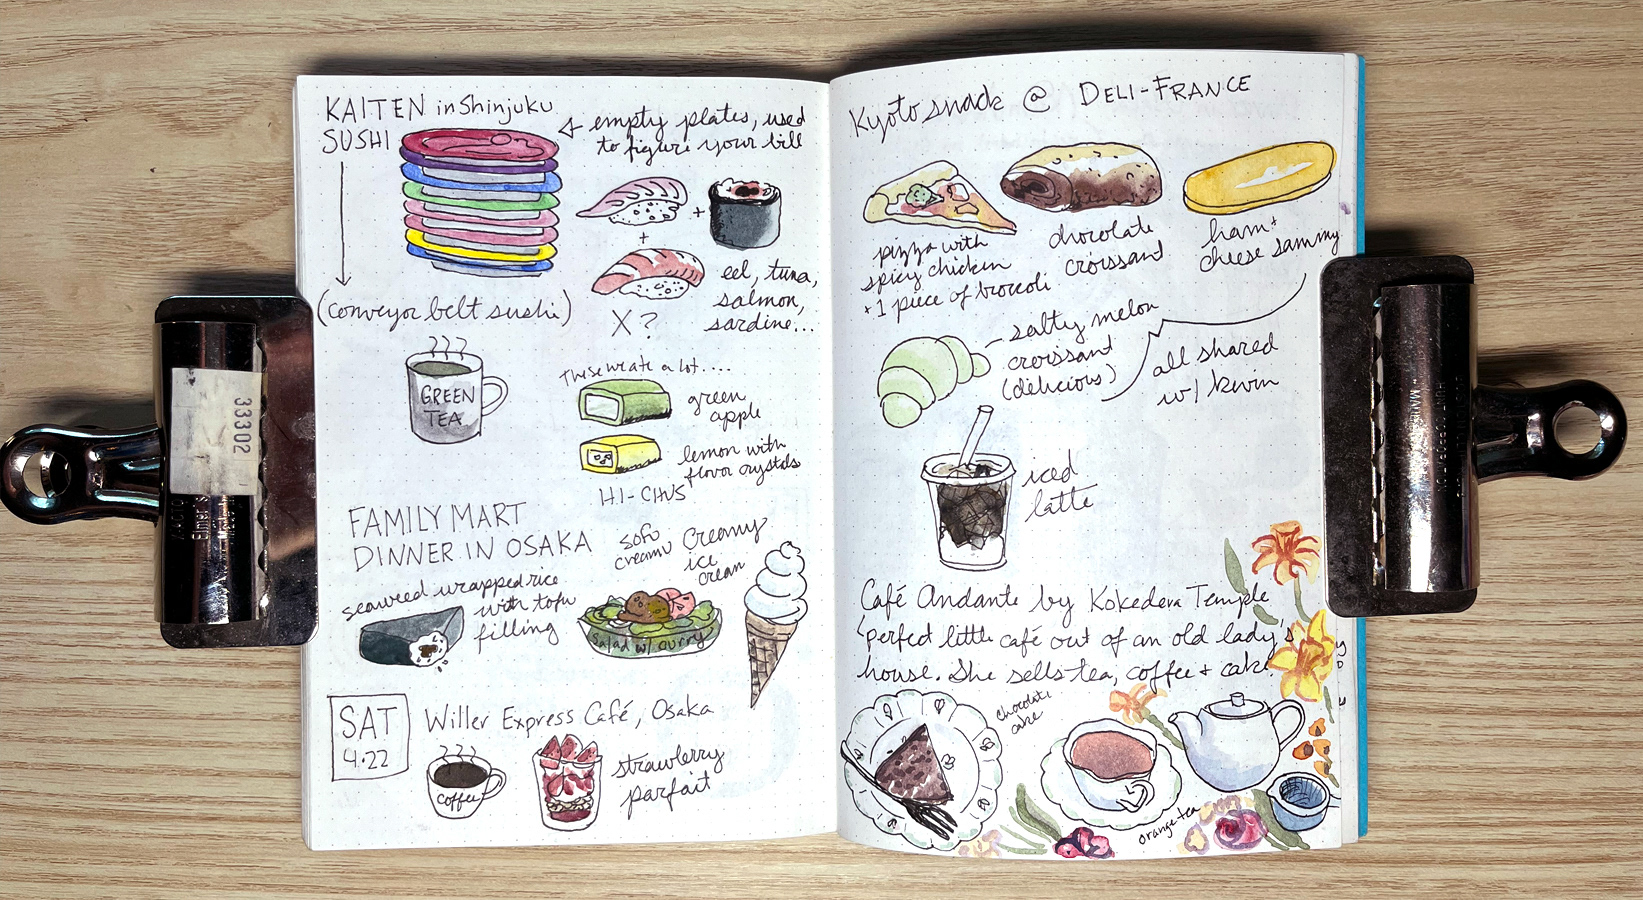 KAITEN in Shinjuku
SUSHI
empty plates, used
to figure your bill
+
+
eel, tuna,
salmon,
sardine...
X ?
(conveyor belt sushi)
GREEN
TEA
These we ate a lot....
green
apple
lemon with
flavor crystals
HI-CHUS
FAMILY MART
DINNER IN OSAKA
seaweed wrapped rice
with tofu
filling
sofu
creamu
Creamy
ice
cream
salad w/ curry
SAT
4.22
Willer Express Café, Osaka
coffee
strawberry
parfait
Kyoto snack @ DELI-FRANCE
pizza with
spicy chicken
+ 1 piece of broccoli
chocolate
croissant
ham +
cheese sammy
salty melon
croissant
(delicious)
all shared
w/ kevin
iced
latte
Café Andante by Kokedera Temple
perfect little café out of an old lady's
house. She sells tea, coffee + cake.
chocolate
cake
orange tea
33302